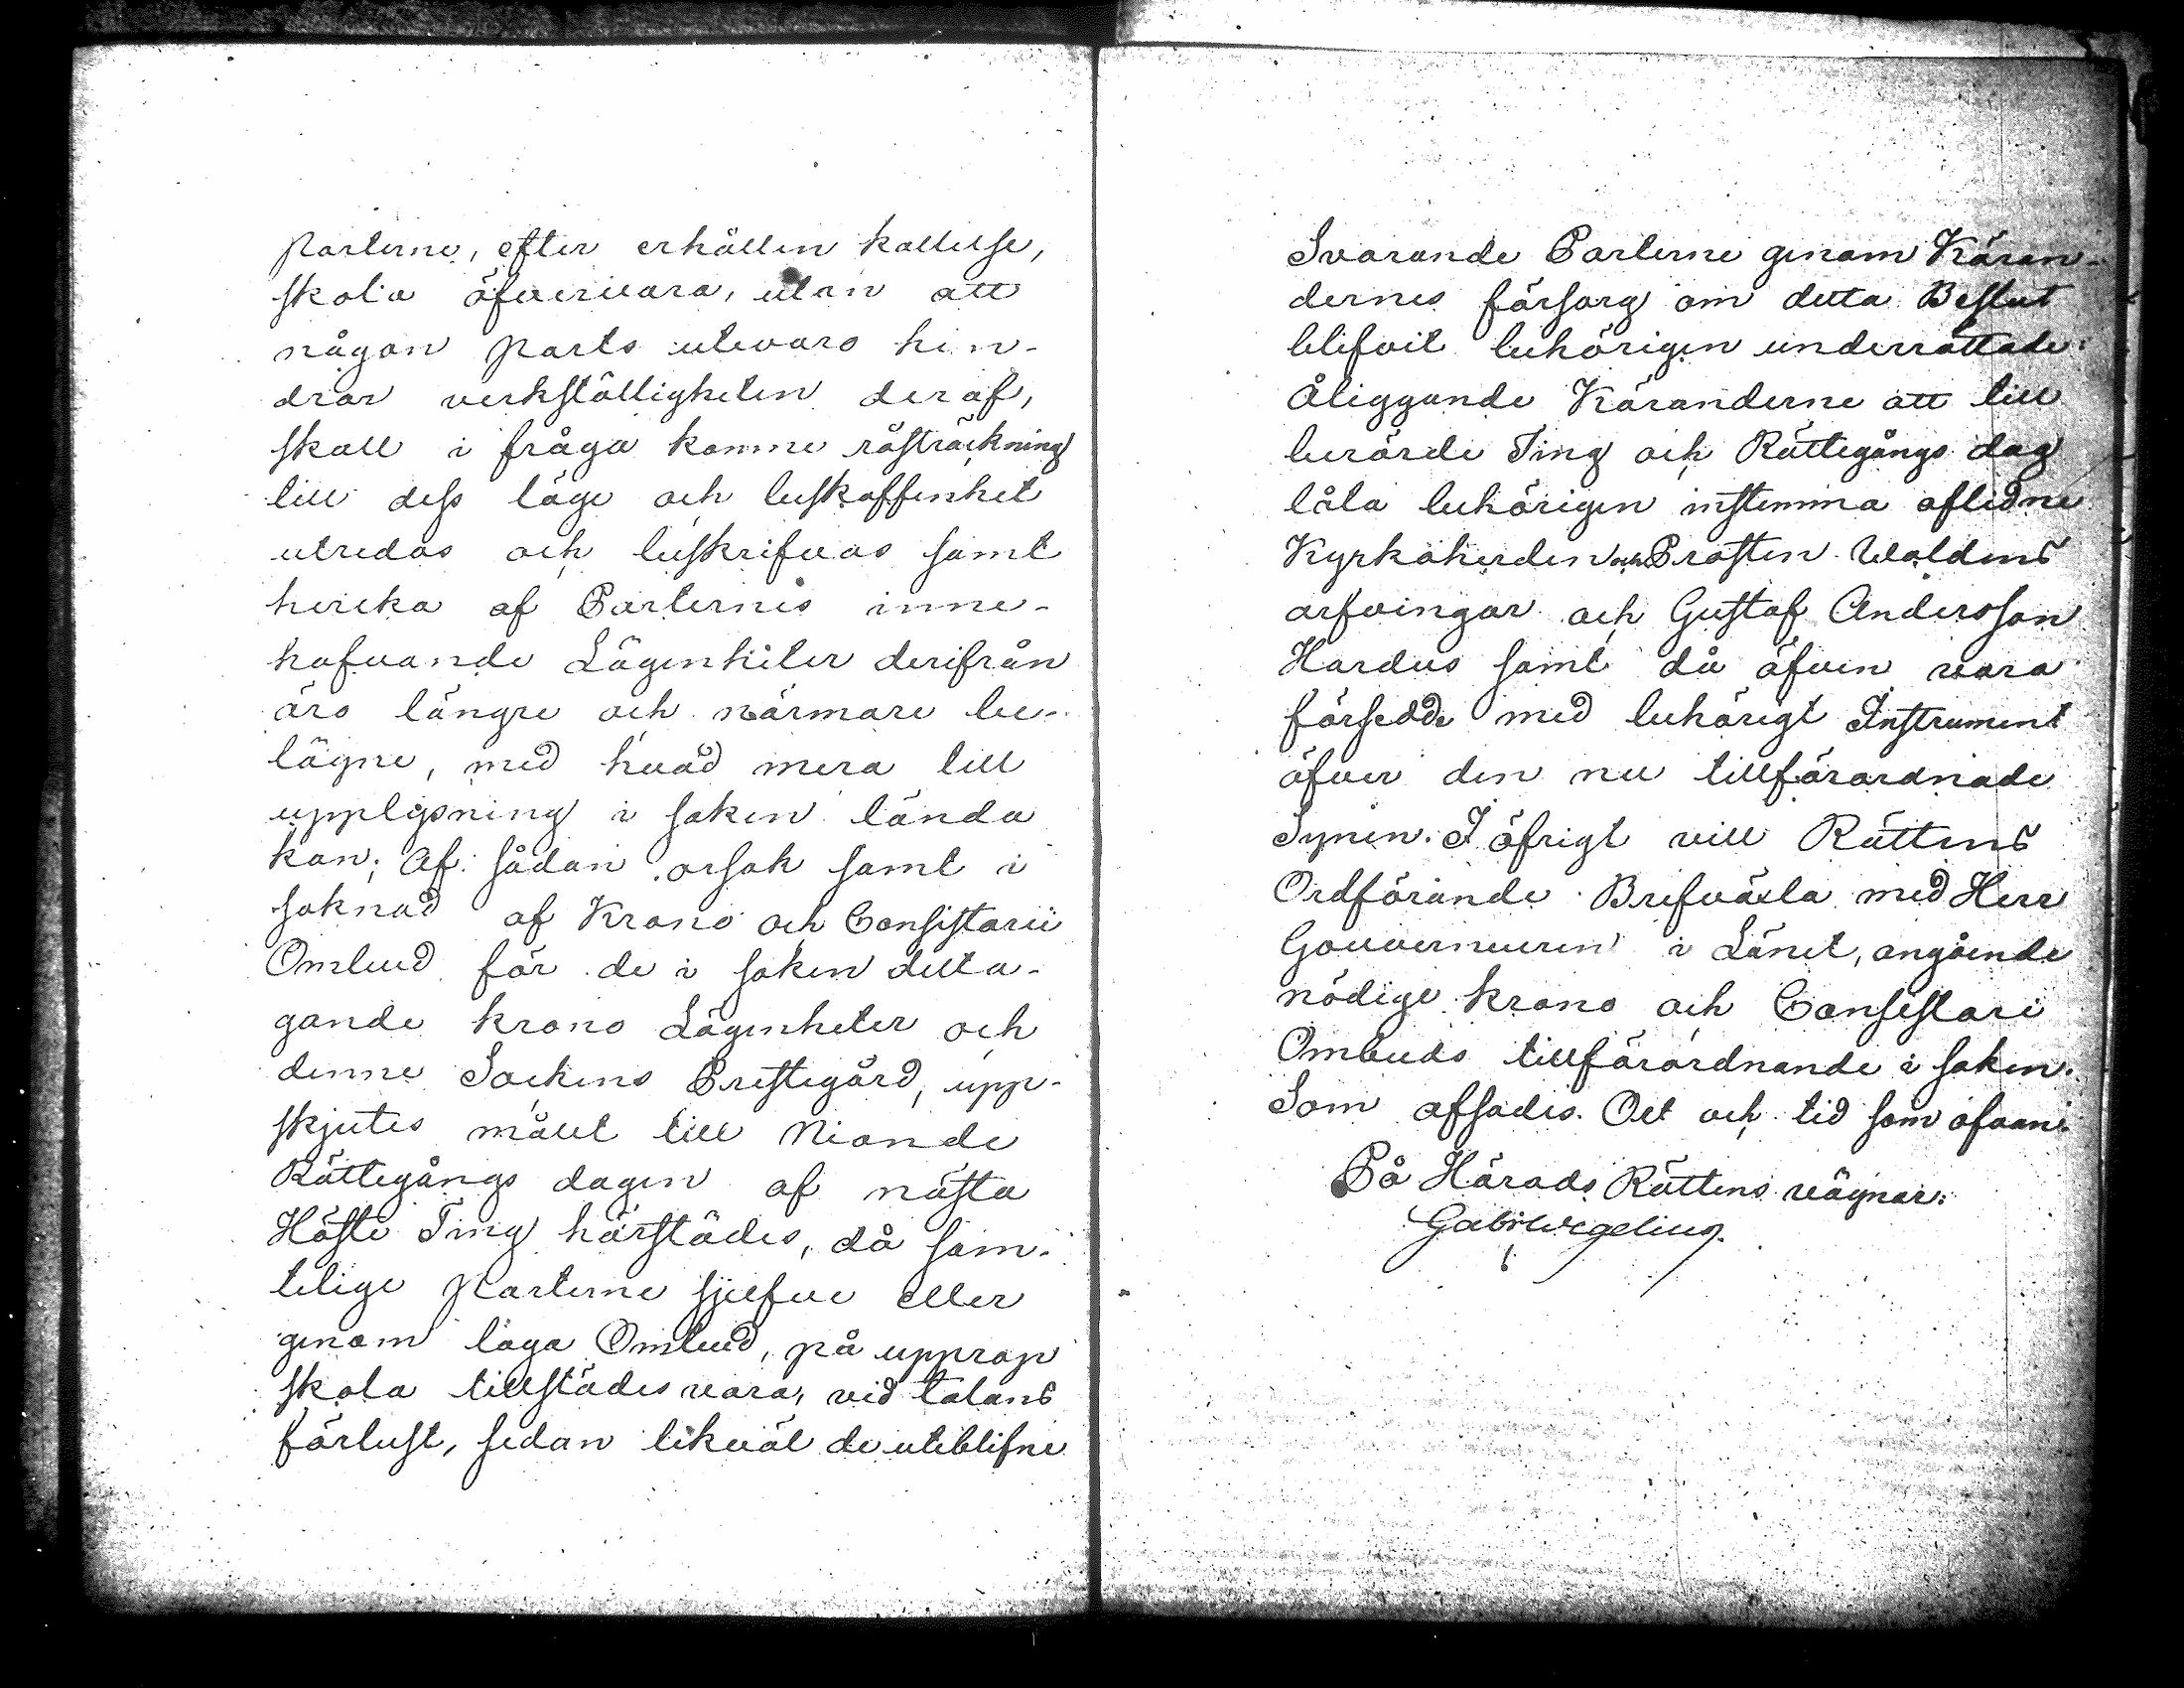 parterne, efter erhållen kallelse,
skola öfvervara, utan att
någon parts utevaro hin-
drar verkställigheten deraf,
skall i fråga komne råsträckning
till dess läge och beskaffenhet
utredas och beskrifvas samt
hvilka af Parternes inne-
hafvande Lägenheter derifrån
äro längre och närmare be-
lägne, med hvad mera till
upplysning i saken lända
kan; Af sådan orsak samt i
saknad af Krono och Consistorii
Ombud för de i saken delta-
gande krono Lägenheter och
denne Sockens Prestegård, upp-
skjutes målet till Niande
Rättegångs dagen af nästa
Höste Ting härstädes, då sam-
telige parterne sjelfve eller
genom laga Ombud, på upprop
skola tillstädes vara, vid talans
förlust, sedan likväl de uteblifne
Svarande Parterne genom Käran-
dernes försorg om detta Beslut
blifvit behörigen underrättade:
Åliggande Käranderne att till
berörde Ting och Rättegångs dag
låta behörigen instemma aflidne
Kyrkoherden och Prosten Waldens
arfvingar och Gustaf Andersson
Hardus samt då äfven vara
försedde med behörigt Instrument
öfver den nu tillförordnade
Synen. I öfrigt vill Rättens
Ordförande Brefväxla med Herr
Gouverneuren i Länet, angående
nödige krono och Consistori
Ombuds tillförordnande i saken.
Som afsades. Ort och tid som ofvan.
På Härads Rättens vägnar:
Gabr Wegelius.